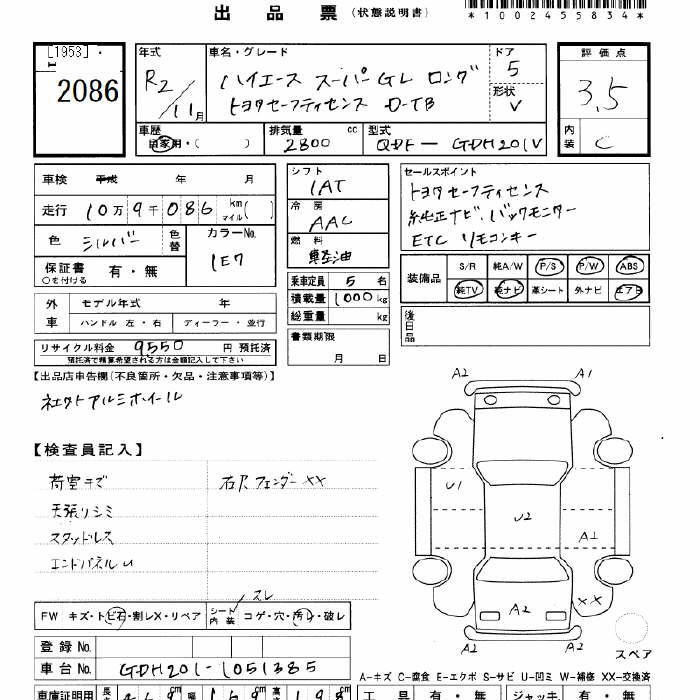 出品票 (状態説明書)
*1002455834*
[1953]
2086
年式 R2/11月
車名・グレード ハイエース スーパーGL ロング
トヨタセーフティセンス D-TB
ドア 5
形状 V
評価点 3.5
内装 C
車歴 自家用・( )
排気量 2800 cc
型式 QDF-GDH201V
車検 平成 年 月
走行 10万9千086 km マイル( )
色 シルバー 色替
カラーNo. 1E7
保証書 有・無
○を付ける
シフト IAT
冷房 AAC
燃料 軽油
乗車定員 5 名
積載量 1000 kg
総重量 kg
書類期限 月 日
セールスポイント
トヨタセーフティセンス
純正ナビ、バックモニター
ETC リモコンキー
装備品 S/R 純A/W P/S P/W ABS
純TV 純ナビ 革シート 外ナビ エアB
後日品
外車 モデル年式 年
ハンドル 左・右 ディーラー・並行
リサイクル料金 9550 円 預託済
預託済で精算希望される方は金額記入して下さい
【出品店申告欄(不良箇所・欠品・注意事項等)】
社外アルミホイール
【検査員記入】
荷室キズ
天張りシミ
スタッドレス
エンドパネルU
右Fフェンダー XX
スレ
FW キズ・トビ石・割レX・リペア シート内装 コゲ・穴・汚レ・破レ
登録No.
車台No. GDH201-1051385
A2 A1
U1
U2
A1
A2
XX
スペア
A-キズ C-腐食 E-エクボ S-サビ U-凹ミ W-補修 XX-交換済
車庫証明用
工具 有・無 ジャッキ 有・無